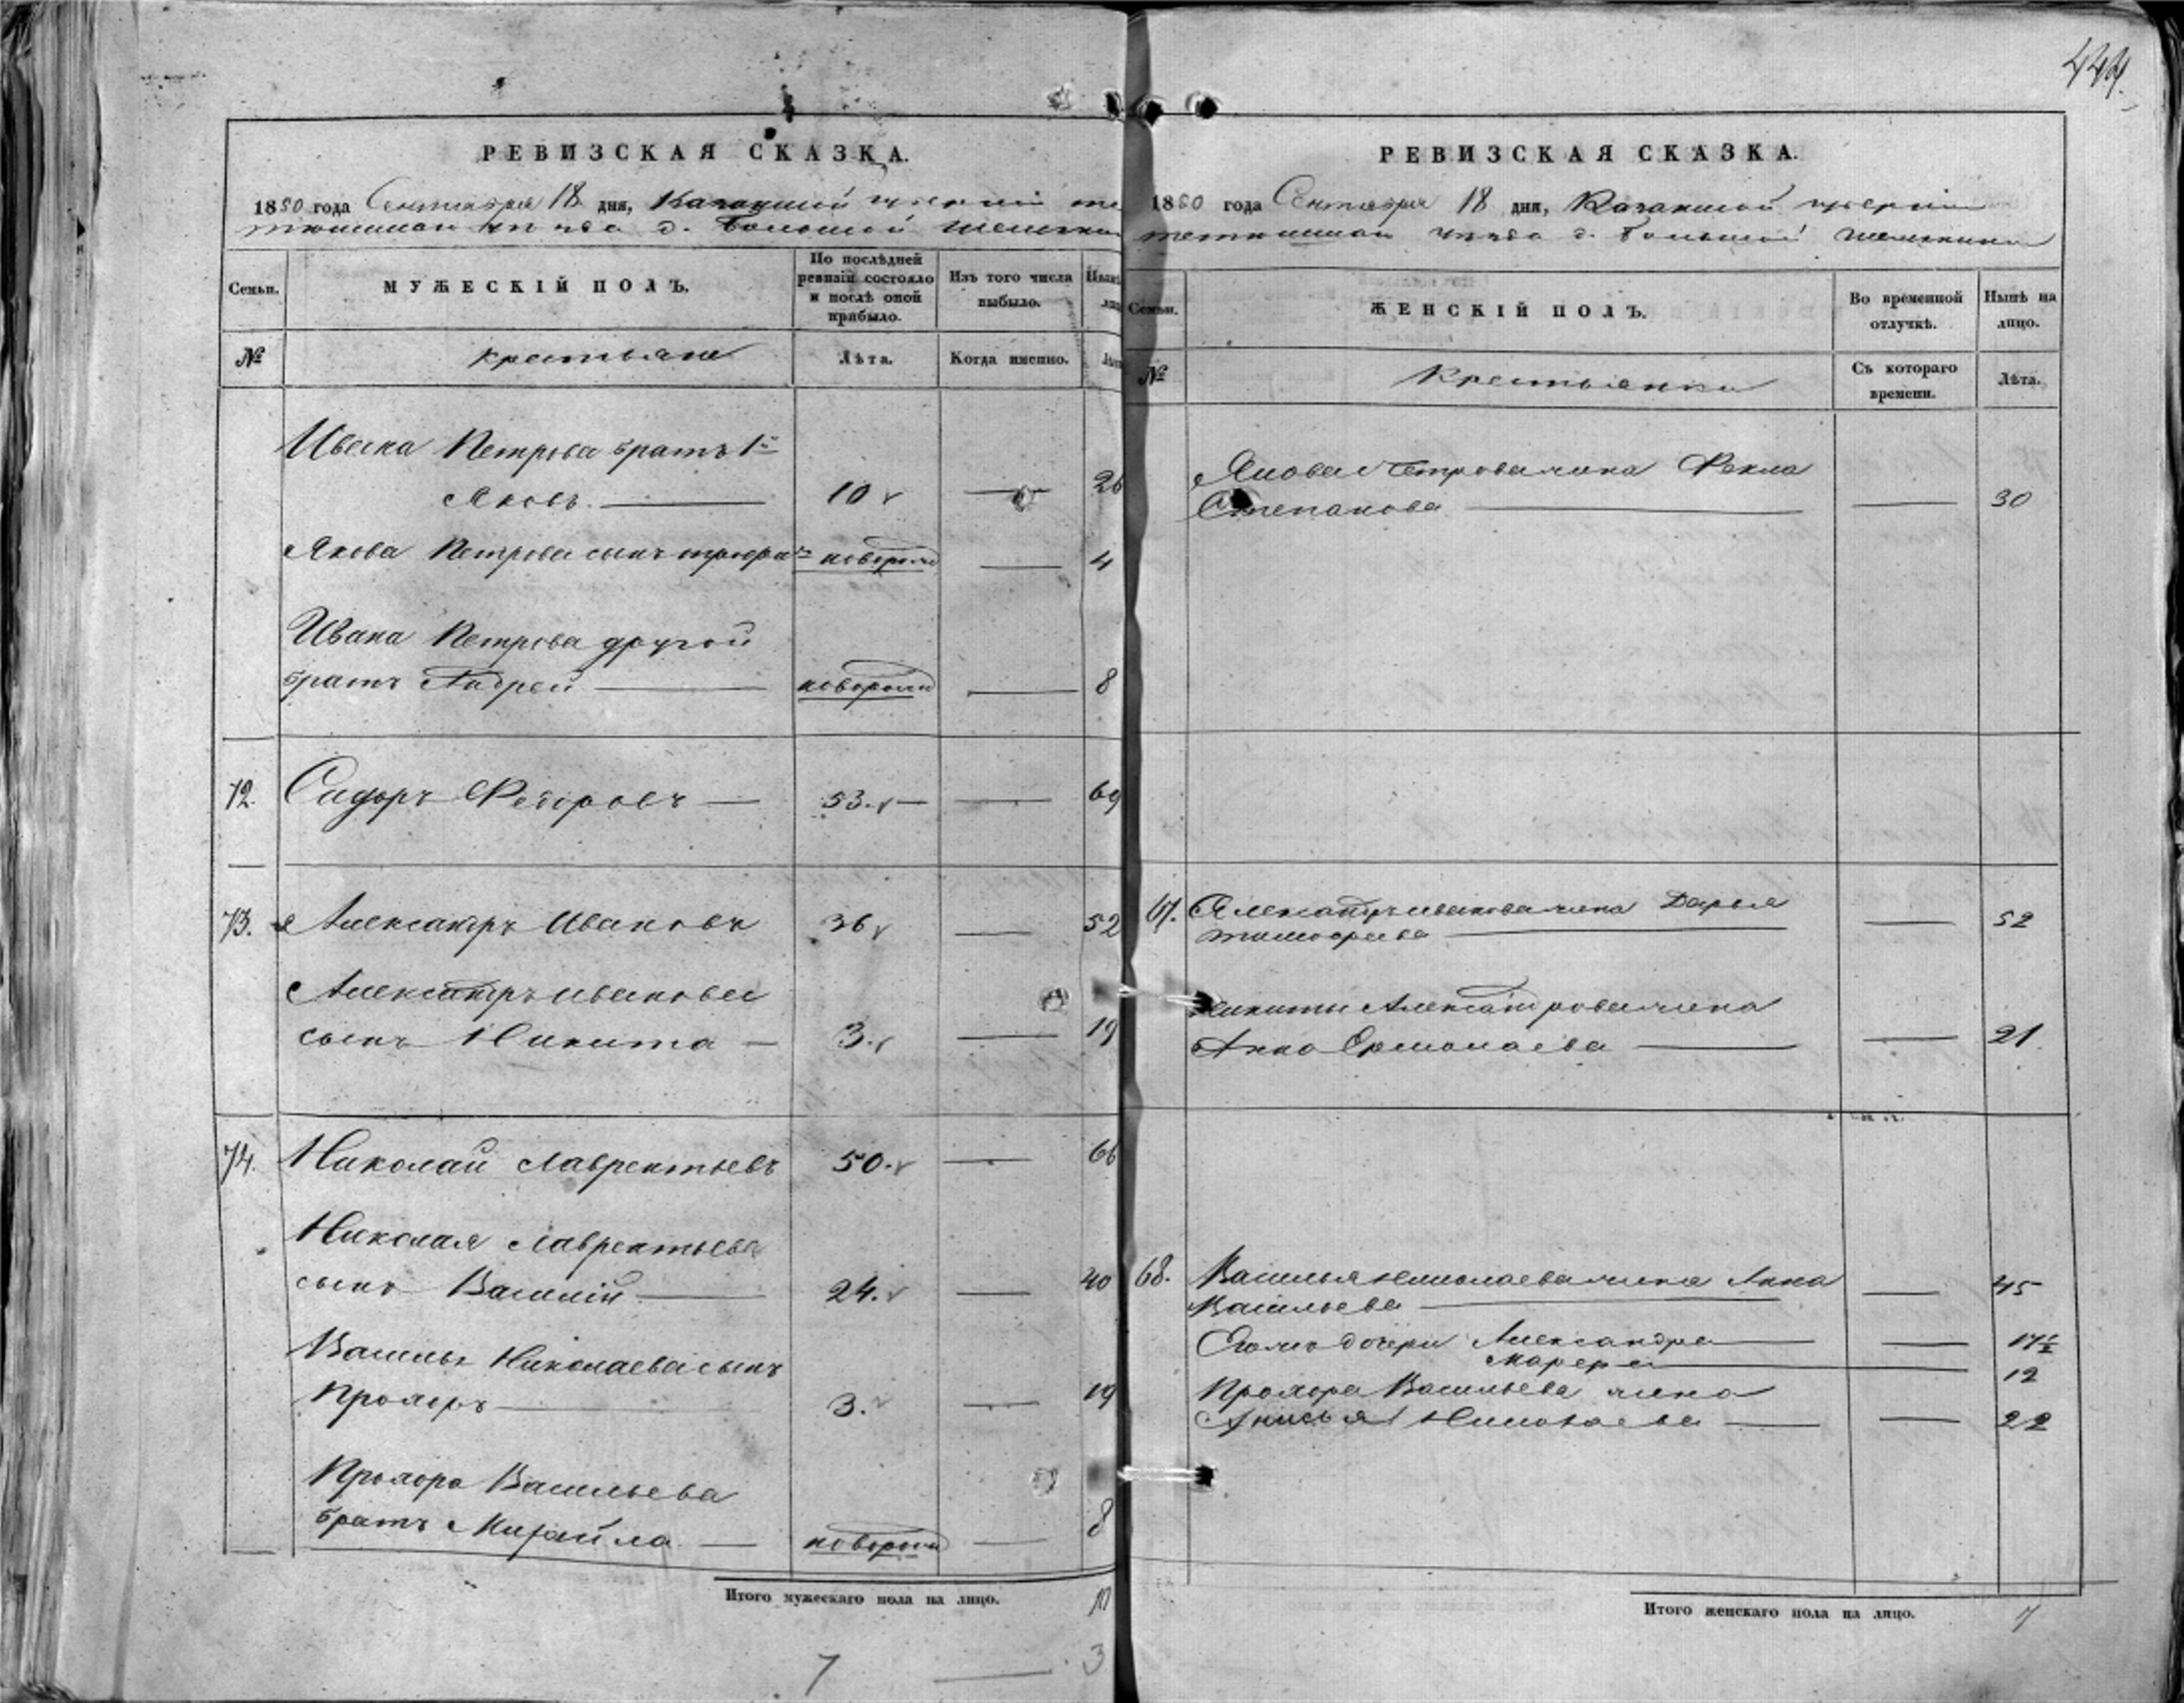 444.
РЕВИЗСКАЯ СКАЗКА.
1850 года Сентября 18 дня, Казанской губернии те
тюшскаго уезда д. Большой Шемякин
Семьи.
МУЖЕСКІЙ ПОЛЪ.
По послѣдней ревизіи состояло и послѣ оной прибыло.
Изъ того числа выбыло.
№
крестьяне
Лѣта.
Когда именно.
Ивана Петрова братъ 1й
Яковъ. 10 26
Якова Петрова сынъ новорож 4
Ивана Петрова другой
братъ Андрей новорожд 8
72. Сидоръ Федоровъ 53. 69
73. Александръ Ивановъ 36 52
Александръ Иванова
сынъ Никита 3. 19
74. Николай Лаврентьевъ 50. 66
Николая Лаврентьева
сынъ Василій 24. 40
Василья Николаева сынъ
Прохоръ 3. 19
Прохора Васильева
братъ Михайла новорожд 8
Итого мужескаго пола на лицо.
7 3
РЕВИЗСКАЯ СКАЗКА.
1850 года Сентября 18 дня, Казанской губерніи
тетюшскаго уезда д. Большой Шемякиной
Семьи.
ЖЕНСКІЙ ПОЛЪ.
Во временной отлучкѣ.
Нынѣ на лицо.
№
Крестьянки
Съ котораго времени.
Лѣта.
Якова Петрова жена Фекла
Степанова 30
67. Александръ Иванова жена Дарья
тимофеева 52
Никиты Александрова жена
Анна Ермолаева 21.
68. Василья Николаева жена Анна
Васильева 45
дочери Александра 17
Марфа 12
Прохора Васильева жена
Анисья Николаева 22
Итого женскаго пола на лицо. 7